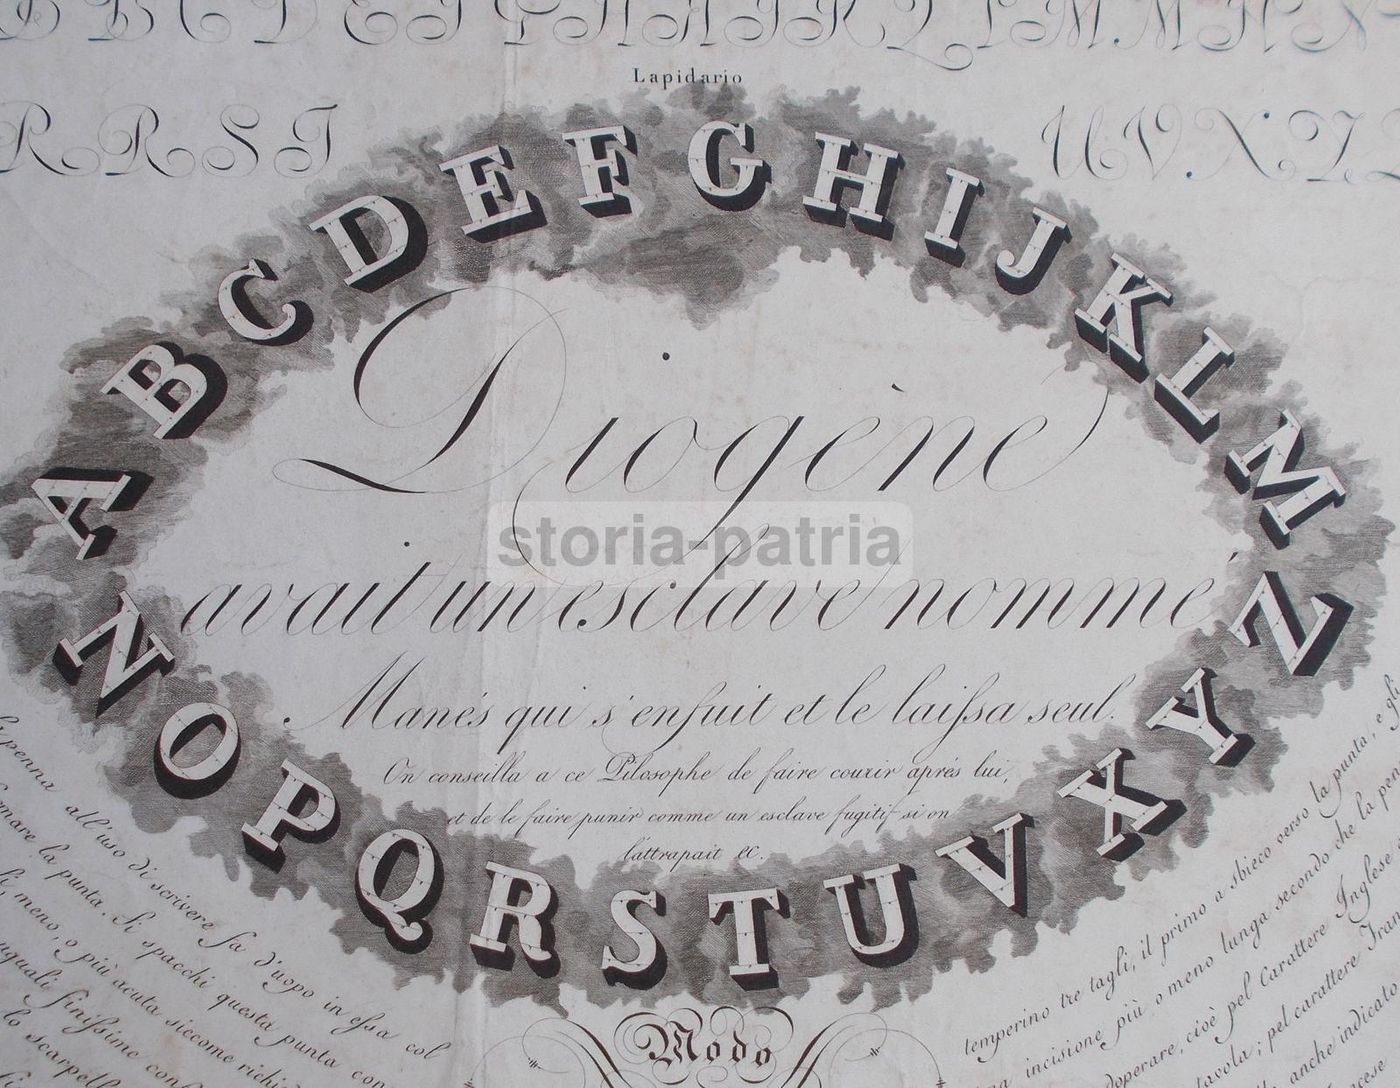 B C D E F G H A I K L L M M N N
Lapidario
R R S T U V X Y Z
A B C D E F G H I J K L M
Diogène
storia-patria
avait un esclave nommé
Manés qui s'enfuit et le laiſsa seul.
On conseilla a ce Pilosophe de faire courir aprés lui,
et de le faire punir comme un esclave fugitif si on
l'attrapait ec.
N O P Q R S T U V X Y Z
Modo
penna all'uso di scrivere fa d'uopo in eſsa col
la punta. Si spacchi questa punta con
meno, o più acuta siccome
uguali finiſsimo
lo
temperino tre tagli, il primo a sbieco verso la punta, e gli
incisione più o meno lunga secondo che la
cioè pel Carattere Inglese
pel carattere
anche indicato